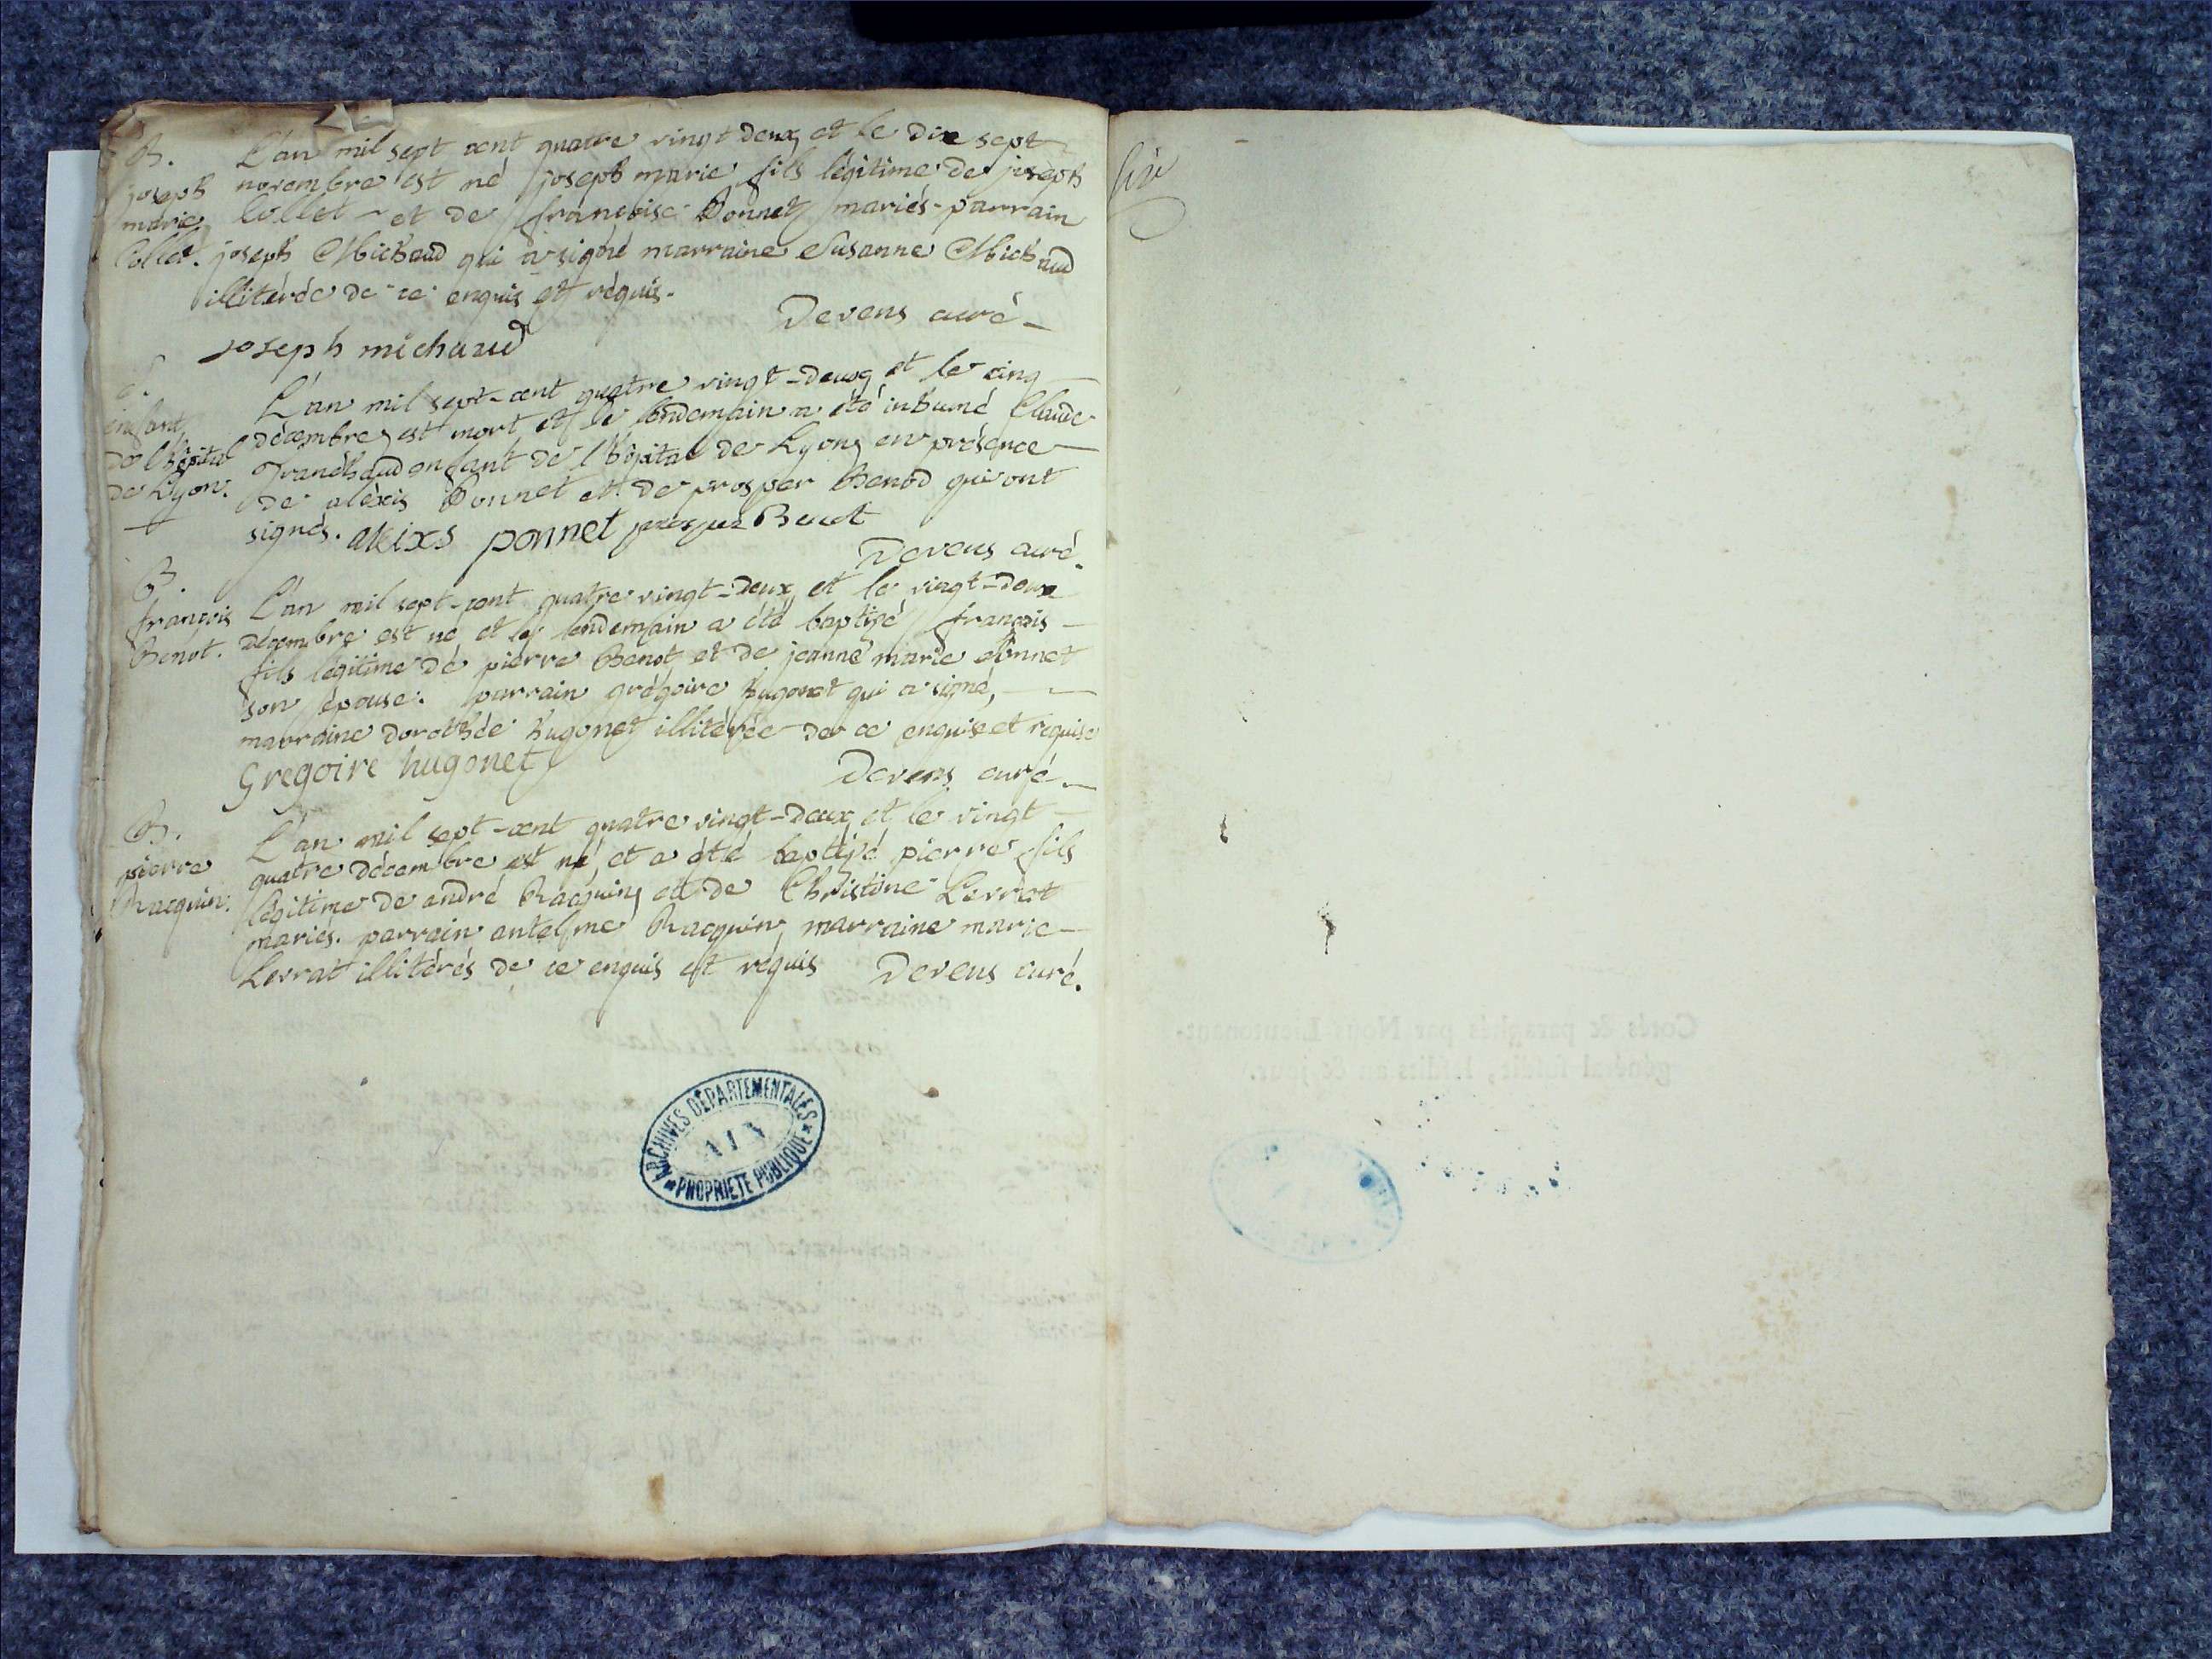 B.
joseph
marie
Collet.
L'an mil sept cent quatre vingt deux et le dix sept
novembre est né joseph marie fils légitime de joseph
Collet et de françoise Bonnet mariés - parrain
joseph Michaud qui a signé marraine Susanne Michaud
illitérée de ce enquis et réquis.
Devens curé
joseph michaud
enfant
de l'hôpital
de Lyon.
L'an mil sept-cent quatre vingt-deux et le cinq
décembre est mort et le lendemain a été inhumé Claude
enfant de l'hôpital de Lyon en présence
de alexis Bonnet et de prosper Benod qui ont
signés. aleixs ponnet
Devens curé.
B.
françois
Benot.
L'an mil sept-cent quatre vingt-deux et le vingt-deux
décembre est né et le lendemain a été baptisé françois
fils légitime de pierre Benot et de jeanne marie
son épouse: parrain grégoire hugonet qui a signé,
marraine dorothée hugonet illitérée de ce enquise et requise
Gregoire hugonet
Devens curé
B.
pierre
Racquin.
L'an mil sept-cent quatre vingt-deux et le vingt
quatre décembre est né et a été baptisé pierre fils
légitime de andré Racquin et de Christine Lerrat
mariés. parrain antelme Racquin marraine marie
Lerrat illitérés de ce enquis et réquis Devens curé.
ARCHIVES DÉPARTEMENTALES
AIN
PROPRIÉTÉ PUBLIQUE
Cotés & paraphés par Nous Lieutenant-
général susdit, lesdits an & jour.